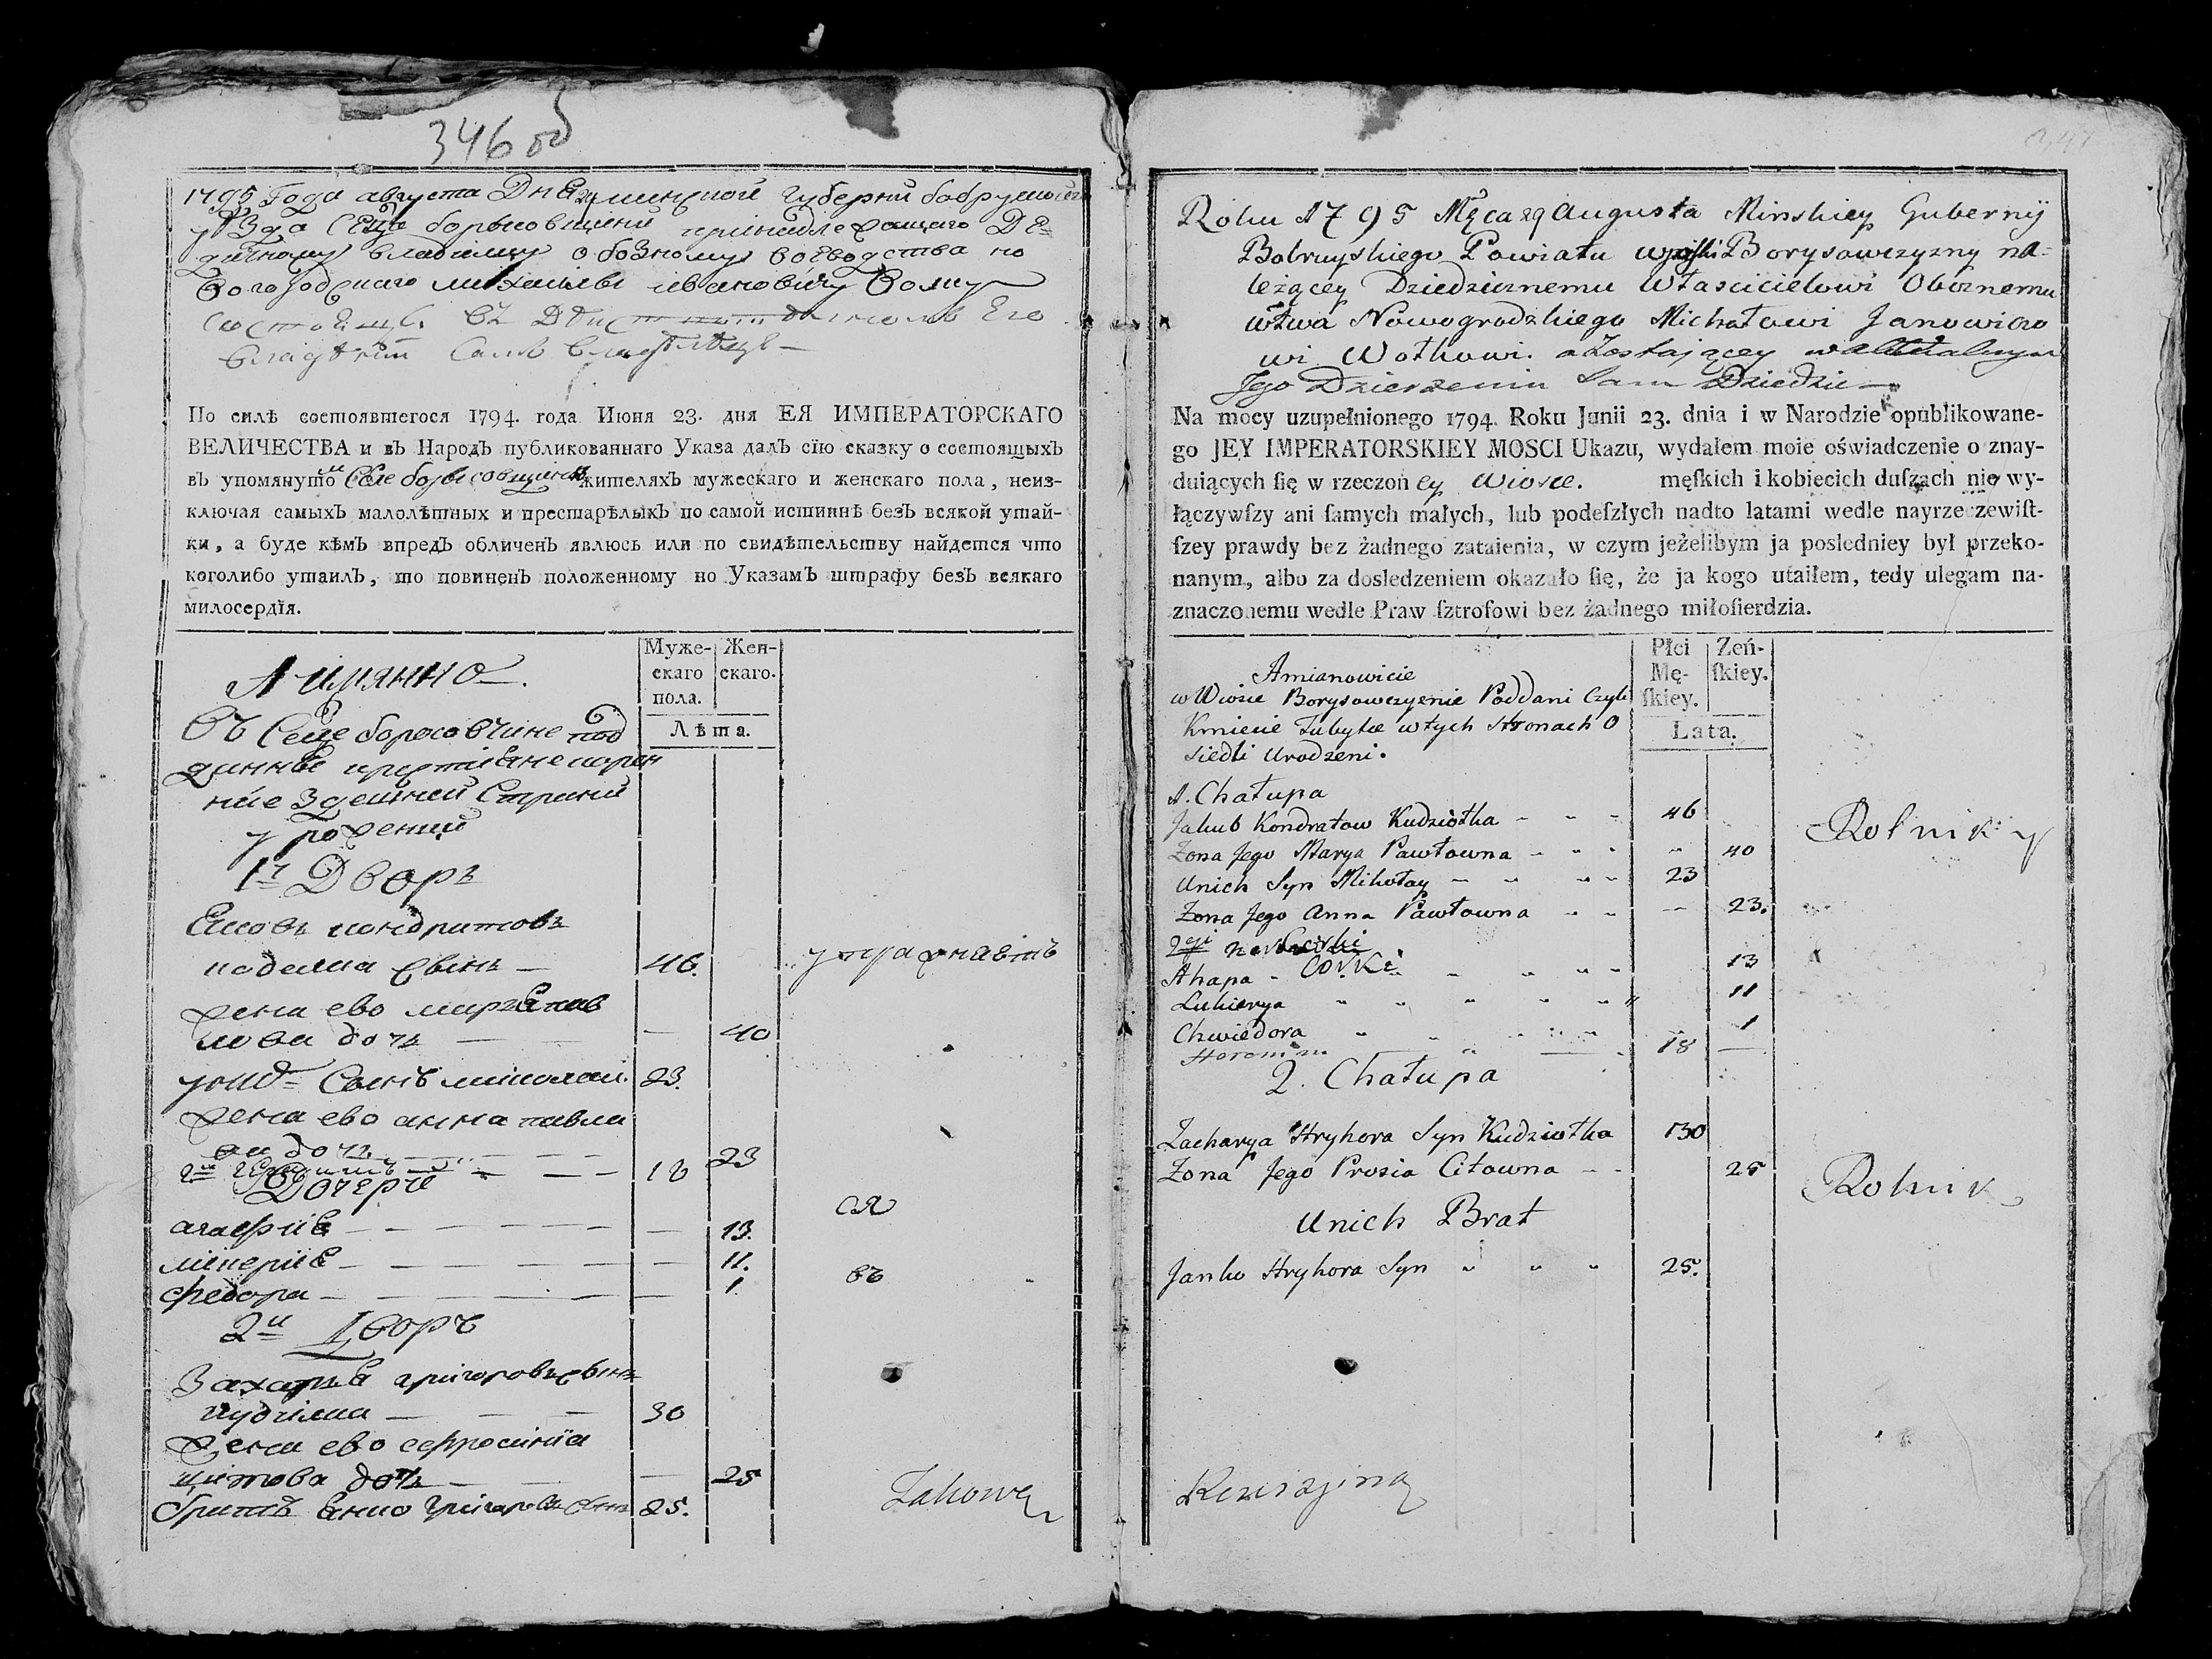 346 об
1795 Года августа Дня минской губернии бобруйского
уѣзда Селце борисовщини принадлежащаго Дѣ=
дичному владелцу обозному воеводства но
вогородскаго михаилѣ ивановичу волку
состоящеѣ въ Его
владѣнии Самъ владѣлецъ —
По силѣ состоявшегося 1794. года Июня 23. дня ЕЯ ИМПЕРАТОРСКАГО
ВЕЛИЧЕСТВА и вЪ НародЪ публикованнаго Указа далЪ сїю сказку о состоящыхЪ
вЪ упомянуто м Селе борисовщине жителяхЪ мужескаго и женскаго пола, неиз-
ключая самыхЪ малолѣтных и престарѣлыхЪ по самой истиннѣ безЪ всякой утай-
ки, а буде кѣмЪ впредЪ обличенЪ явлюсь или по свидѣтельству найдется что
коголибо утаилЪ, то повиненЪ положенному по УказамЪ штрафу безЪ всякаго
милосердїя.
Муже-
скаго
пола.
Жен-
скаго.
Лѣта.
А имянно.
Въ Селце борисовчине под
данные крестіяне корен
ніе здешней Страни
урожении
1й Дворъ
Яковъ кондратовъ
коделка сынъ — 46. упражнаютъ
жена ево маръя пав
лова дочъ — — 40
у нихъ Сынъ миколай. 23.
жена ево анна павло
ва дочъ — 23
2й — — — 18
Дочери ся
агафия — — 13.
лікерия — — 11. въ
федора — — 1
2й Дворъ
Захаръя григоровъ сынъ
кудіолка — 30
жена ево ефросиния
титова дочъ — — 25
братъ янко григоровъ сынъ 25.
Zakowe
Roku 1795 Mca 29 Augusta Minskiey Gubernij
Bobruyskiego Powiatu Borysowszyzny na=
leżącey Dziedzicznemu Właścicielowi Oboznemu
wtwa Nowogrodzkiego Michałowi Janowiczo
wi Wołkowi. a Zostającey w aktualnym
Jego Dzierżeniu Sam Dziedzic —
Na mocy uzupełnionego 1794. Roku Junii 23. dnia i w Narodzie opublikowane-
go JEY IMPERATORSKIEY MOSCI Ukazu, wydałem moie oświadczenie o znay-
duiących ſię w rzeczon ey Wiosce. męſkich i kobiecich duſzach nie wy-
łączywſzy ani ſamych małych, lub podeſzłych nadto latami wedle nayrzeczewiſt-
ſzey prawdy bez żadnego zataienia, w czym jeżelibym ja posledniey był przeko-
nanym, albo za dosledzeniem okazało ſię, że ja kogo utaiłem, tedy ulegam na-
znaczonemu wedle Praw ſztrofowi bez żadnego miłoſierdzia.
Płci
Mę-
ſkiey.
Zeń-
ſkiey.
Lata.
Amianowicie
w Wiosce Borysowszyznie Poddani Czyli
Kmiecie Tubylce w tych Stronach O
siedli Urodzeni.
1. Chałupa
Jakub Kondratow Kudziołka - - - 46 Rolnik y
Żona Jego Marya Pawłowna - - - " 40
Unich Syn Mikołay - - - 23
Żona Jego Anna Pawłowna - - — 23.
2gi
Córki
Ahapa - - - - 13
Lukierya " " " " " 11
Chwiedora " " " " 1
18 —
2. Chałupa
Zacharya Hryhora Syn Kudziołka 30
Żona Jego Prosia Citowna - - 25 Rolnik
Unich Brat
Janko Hryhora Syn " " " 25.